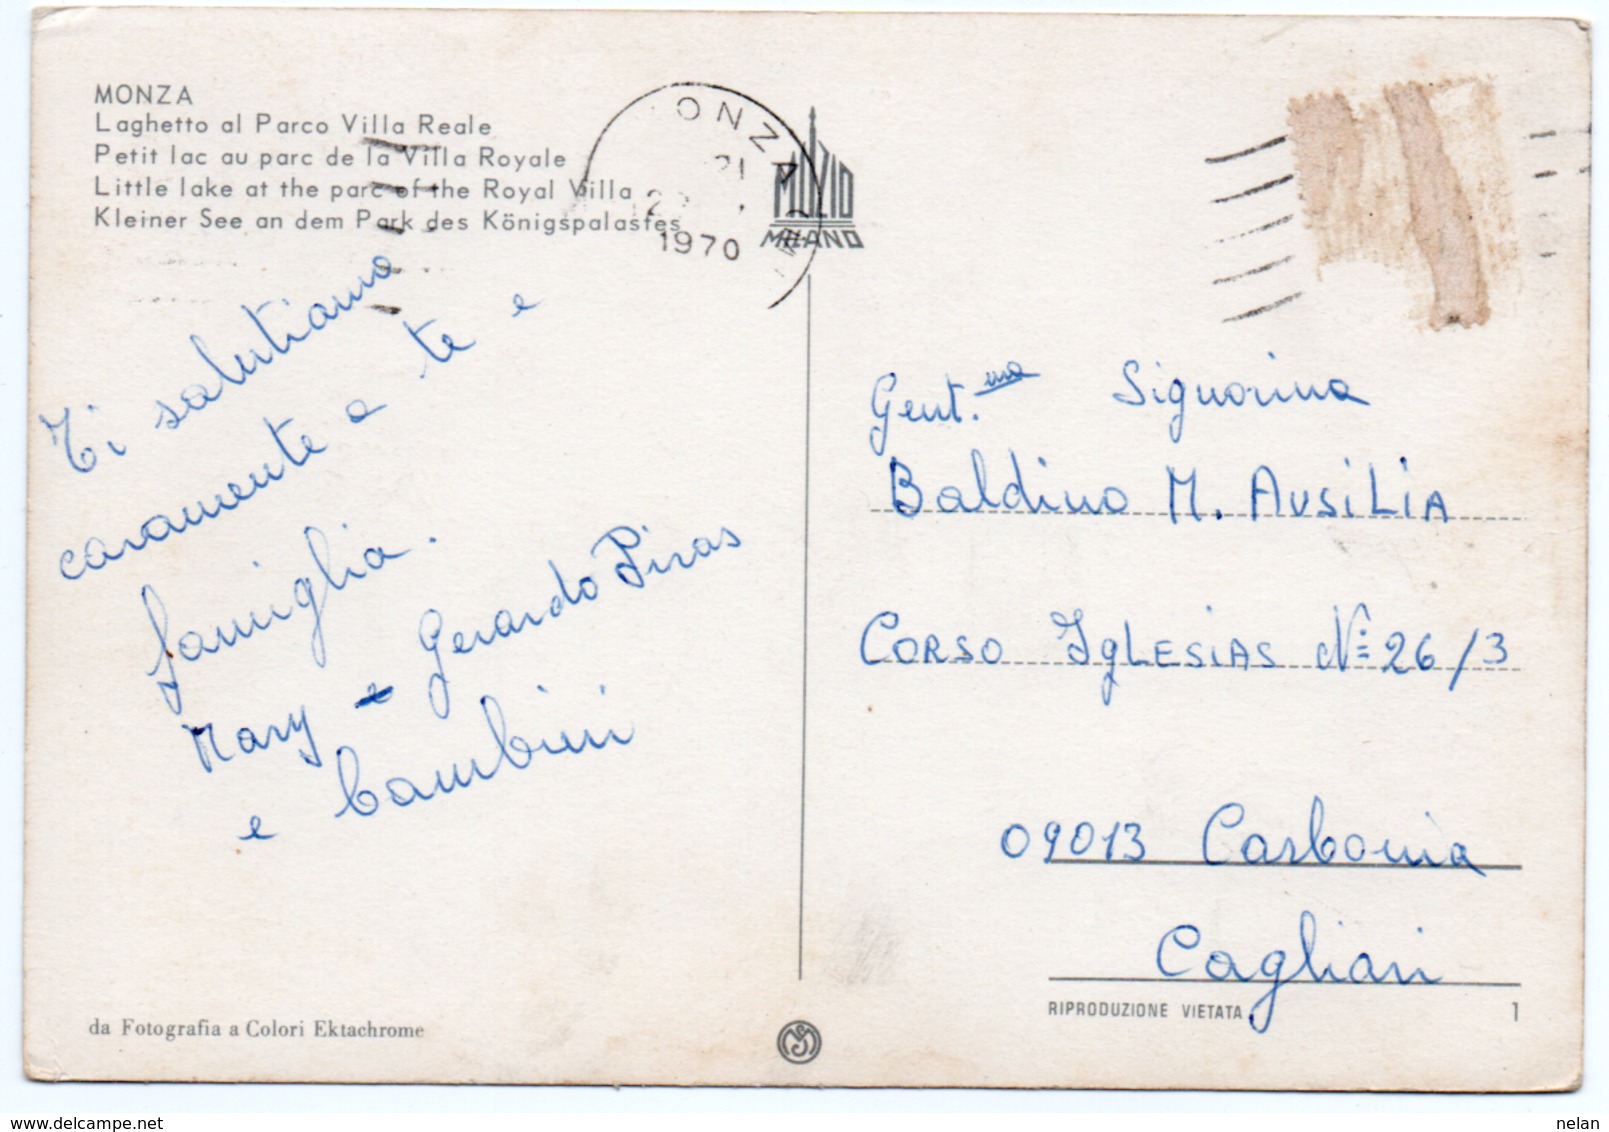 MONZA
Laghetto al Parco Villa Reale
Petit lac au parc de la Villa Royale
Little lake at the parc of the Royal Villa
Kleiner See an dem Park des Königspalastes
ONZA
21
1970
MUZIO
MILANO
Ti salutiamo
caramente a te e
famiglia.
Mary e Gerardo Piras
e bambini
Gent.ma Signorina
Baldino M. AUSiLiA
CORSO IgLESiAS N= 26/3
09013 Carbonia
Cagliari
RIPRODUZIONE VIETATA 1
da Fotografia a Colori Ektachrome
nelan